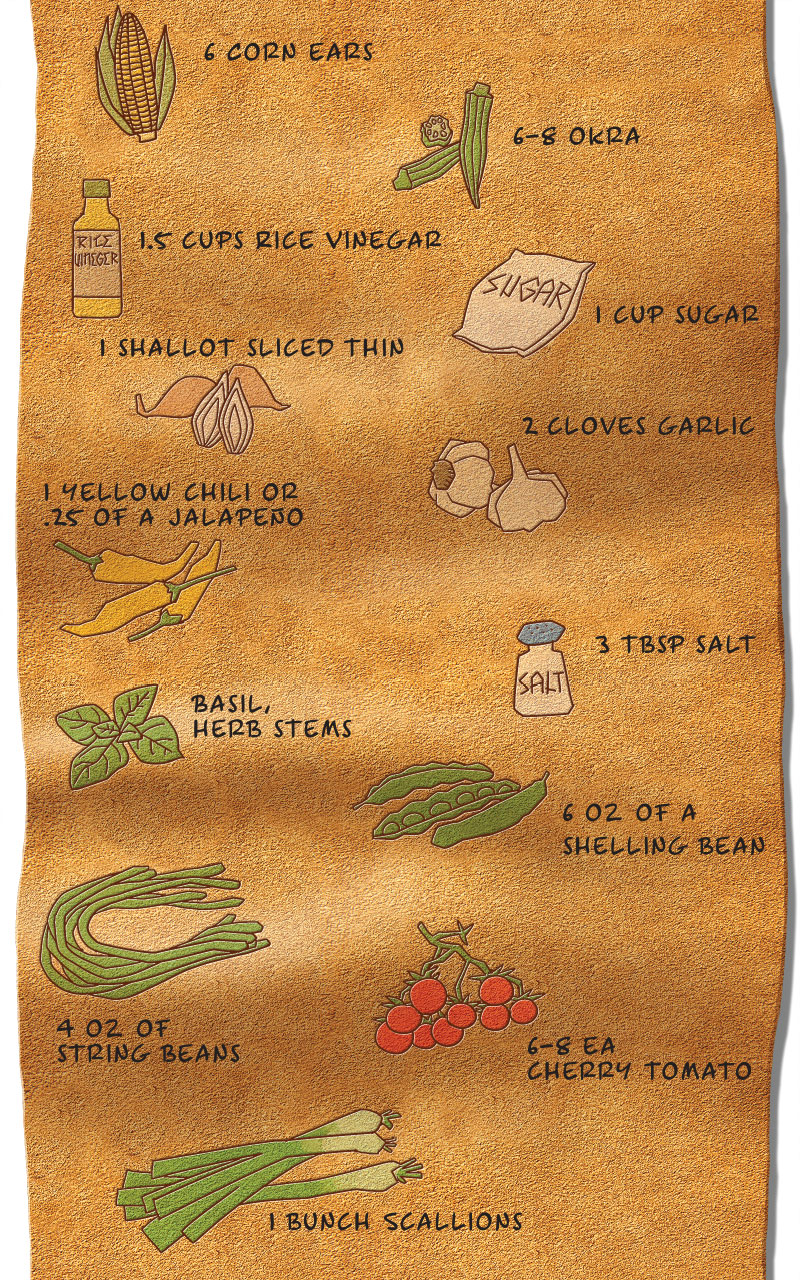 6 CORN EARS
6-8 OKRA
RICE
VINEGER
1.5 CUPS RICE VINEGAR
SUGAR
1 CUP SUGAR
1 SHALLOT SLICED THIN
2 CLOVES GARLIC
1 YELLOW CHILI OR
.25 OF A JALAPEÑO
3 TBSP SALT
SALT
BASIL,
HERB STEMS
6 OZ OF A
SHELLING BEAN
4 OZ OF
STRING BEANS
6-8 EA
CHERRY TOMATO
1 BUNCH SCALLIONS